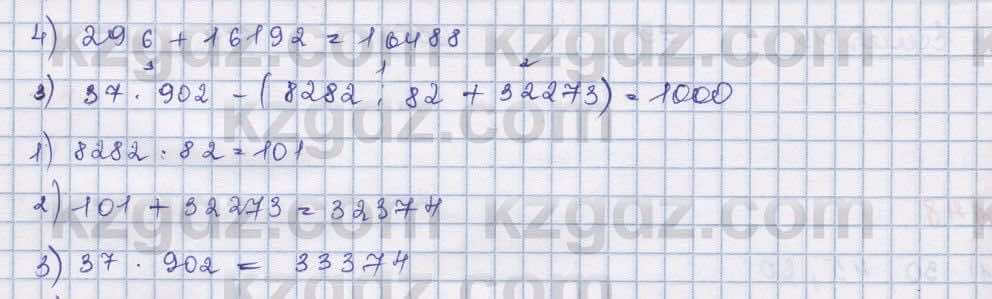 4) 296 + 16192 = 16488
3 1 2
3) 37 · 902 - (8282 : 82 + 32273) = 1000
1) 8282 : 82 = 101
2) 101 + 32273 = 32374
3) 37 · 902 = 33374
kzgdz.com